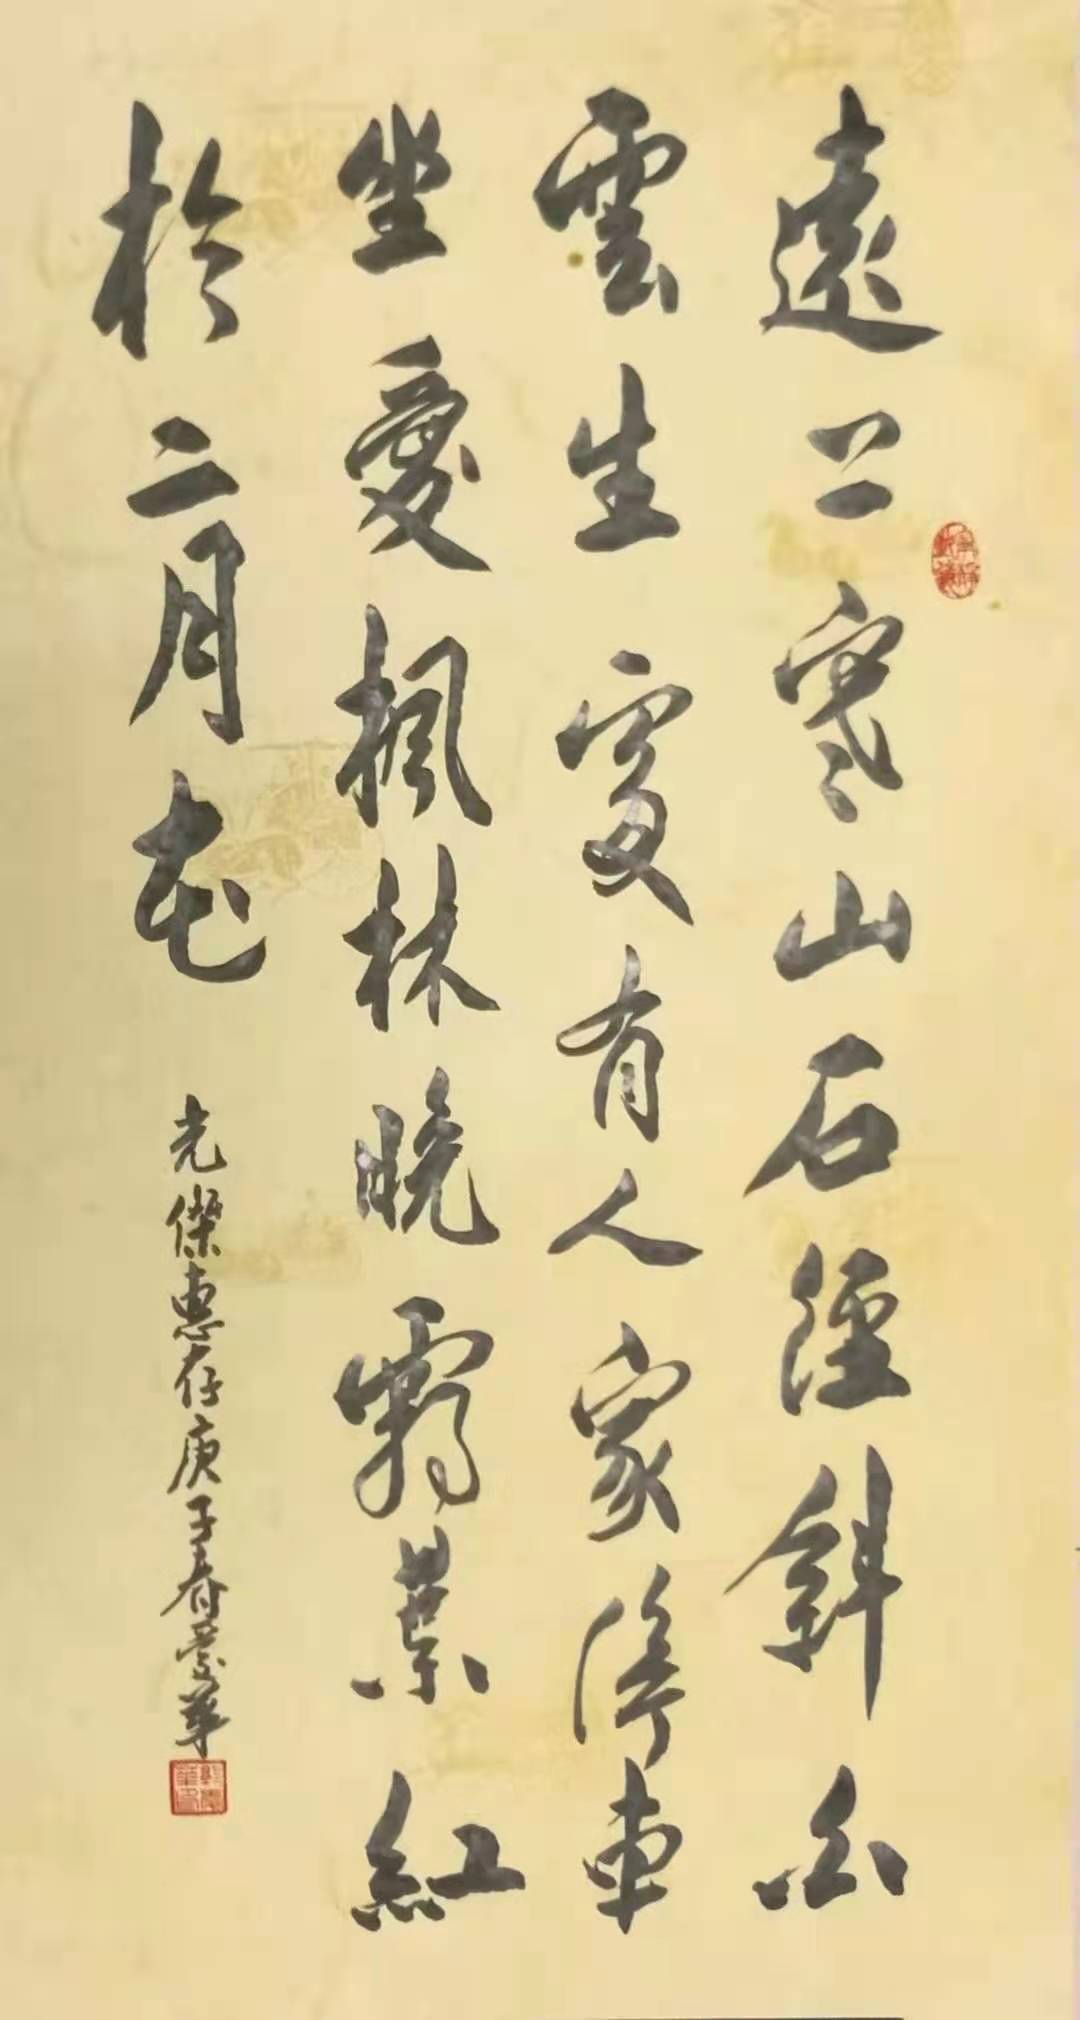 遠上寒山石徑斜白
雲生處有人家停車
坐愛楓林晚霜葉紅
於二月花
光傑惠存庚子春慶華